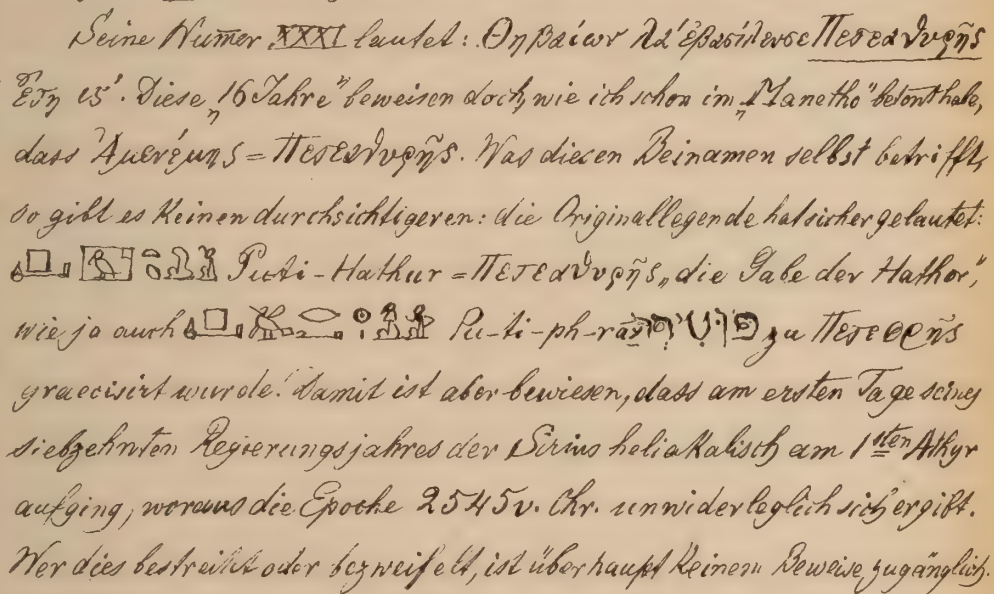 Seine Numer XXXI lautet: Θηβαίων λα' ἐβασίλευσε Πετεαθυρῆς
ἔτη ις'. Diese „16 Jahre" beweisen doch, wie ich schon im „Manetho" betont habe,
dass Ἀμενέμης = Πετεαθυρῆς. Was diesen Beinamen selbst betrifft,
so gibt es keinen durchsichtigeren: die Originallegende hat sicher gelautet:
Puti-Hathur = Πετεαθυρῆς „die Gabe der Hathor",
wie ja auch Pu-ti-ph-ra zu Πετεφρῆς
graecisirt wurde! Damit ist aber bewiesen, dass am ersten Tage seines
siebzehnten Regierungsjahres der Sirius heliakalisch am 1sten Athyr
aufging, woraus die Epoche 2545 v. Chr. unwiderleglich sich ergibt.
Wer dies bestreitet oder bezweifelt, ist überhaupt keinem Beweise zugänglich.